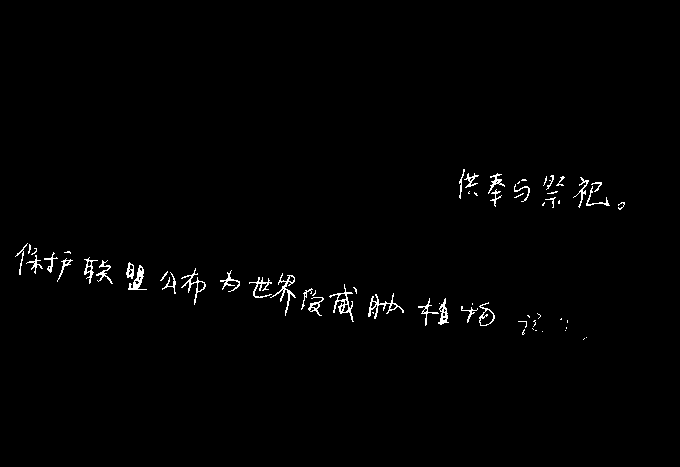 供奉与祭祀。
保护联盟分布为世界受威胁植物